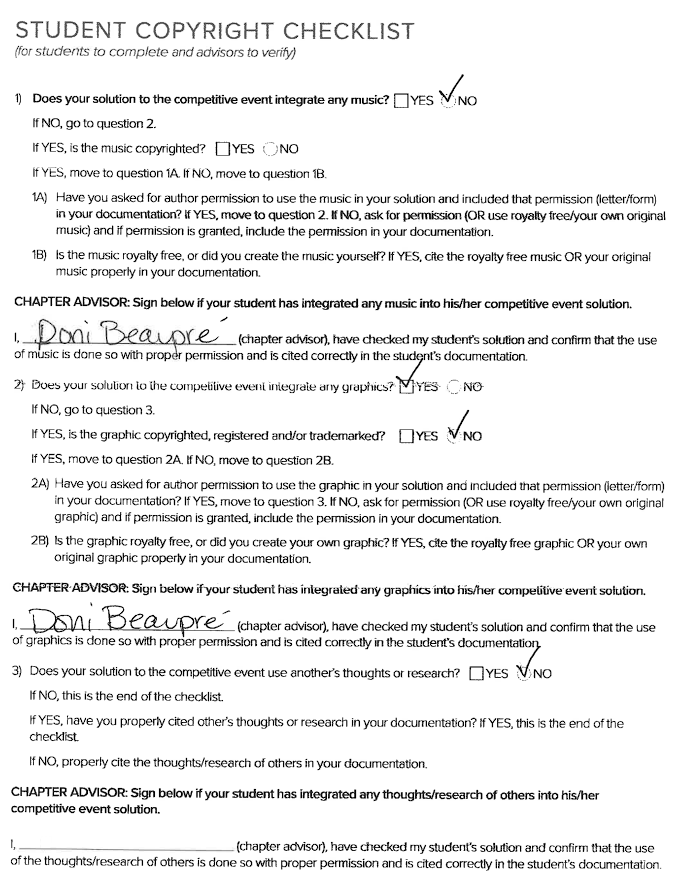 STUDENT COPYRIGHT CHECKLIST
(for students to complete and advisors to verify)
1) Does your solution to the competitive event integrate any music? YES NO
If NO, go to question 2.
If YES, is the music copyrighted? YES NO
If YES, move to question 1A. If NO, move to question 1B.
1A) Have you asked for author permission to use the music in your solution and included that permission (letter/form)
in your documentation? If YES, move to question 2. If NO, ask for permission (OR use royalty free/your own original
music) and if permission is granted, include the permission in your documentation.
1B) Is the music royalty free, or did you create the music yourself? If YES, cite the royalty free music OR your original
music properly in your documentation.
CHAPTER ADVISOR: Sign below if your student has integrated any music into his/her competitive event solution.
I, Doni Beaupré (chapter advisor), have checked my student's solution and confirm that the use
of music is done so with proper permission and is cited correctly in the student's documentation.
2) Does your solution to the competitive event integrate any graphics? YES NO
If NO, go to question 3.
If YES, is the graphic copyrighted, registered and/or trademarked? YES NO
If YES, move to question 2A. If NO, move to question 2B.
2A) Have you asked for author permission to use the graphic in your solution and included that permission (letter/form)
in your documentation? If YES, move to question 3. If NO, ask for permission (OR use royalty free/your own original
graphic) and if permission is granted, include the permission in your documentation.
2B) Is the graphic royalty free, or did you create your own graphic? If YES, cite the royalty free graphic OR your own
original graphic properly in your documentation.
CHAPTER ADVISOR: Sign below if your student has integrated any graphics into his/her competitive event solution.
I, Doni Beaupré (chapter advisor), have checked my student's solution and confirm that the use
of graphics is done so with proper permission and is cited correctly in the student's documentation.
3) Does your solution to the competitive event use another's thoughts or research? YES NO
If NO, this is the end of the checklist.
If YES, have you properly cited other's thoughts or research in your documentation? If YES, this is the end of the
checklist.
If NO, properly cite the thoughts/research of others in your documentation.
CHAPTER ADVISOR: Sign below if your student has integrated any thoughts/research of others into his/her
competitive event solution.
I, (chapter advisor), have checked my student's solution and confirm that the use
of the thoughts/research of others is done so with proper permission and is cited correctly in the student's documentation.